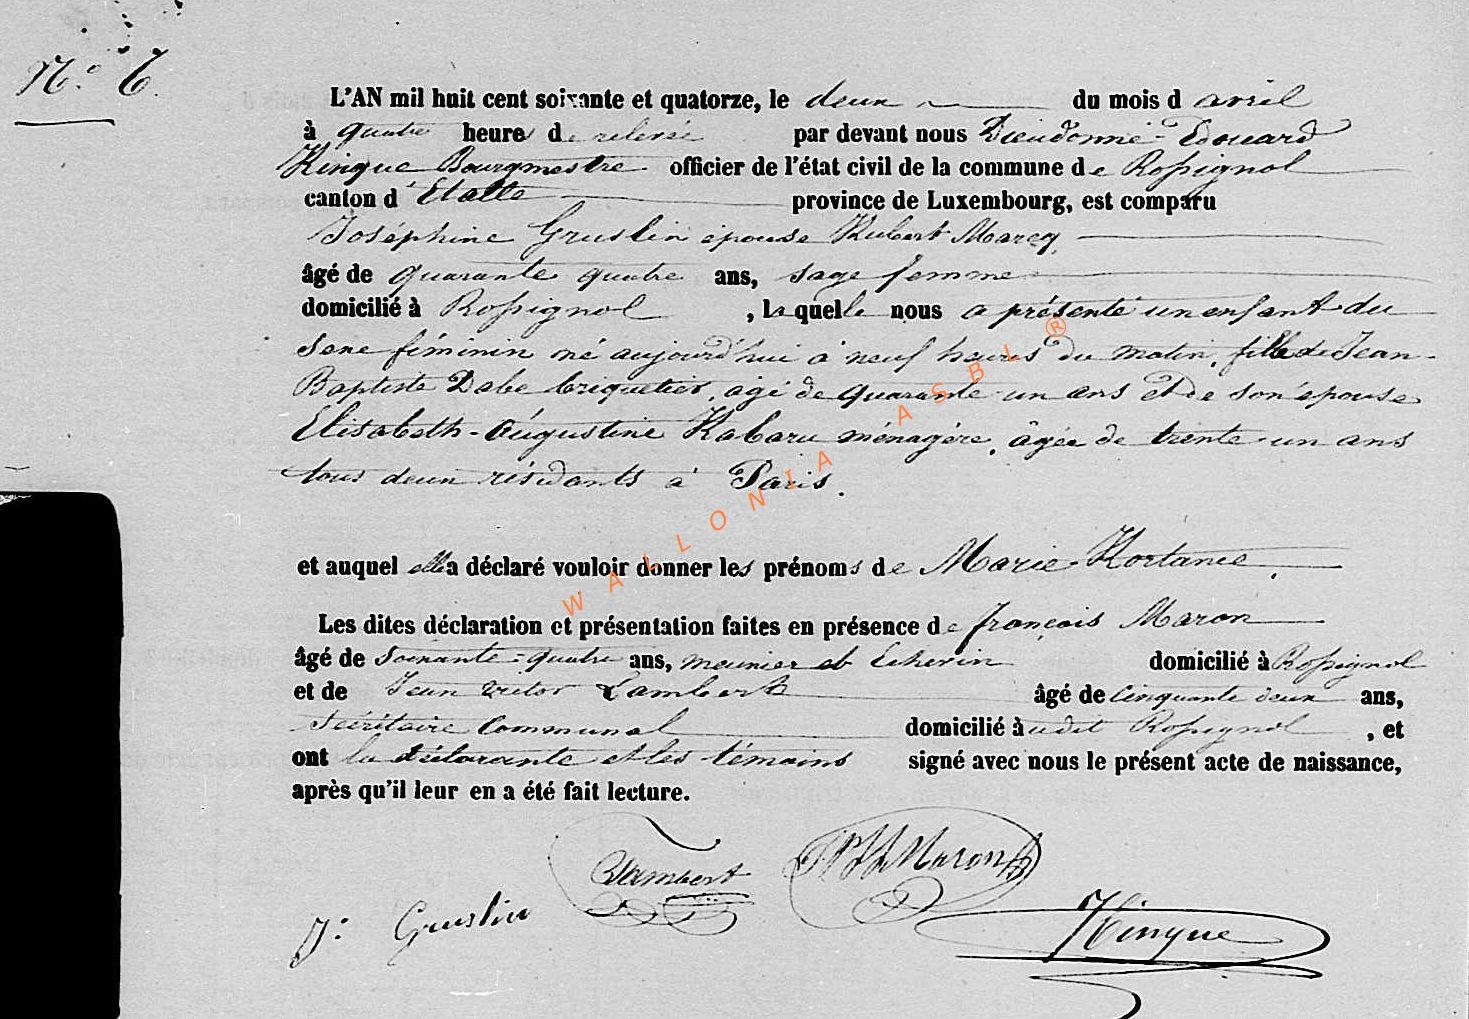 N.º 6.
L'AN mil huit cent soixante et quatorze, le deux du mois d avril
à quatre heures de relevée par devant nous Dieudonné-Edouard
Hinque Bourgmestre officier de l'état civil de la commune de Rossignol
canton d'Etalle province de Luxembourg, est comparu
Joséphine Gruslin épouse Hubert Marcq
âgé de quarante quatre ans, sage femme
domicilié à Rossignol, laquelle nous a présenté un enfant du
sexe féminin né aujourd'hui à neuf heures du matin, fille de Jean-
Baptiste Dabe briquetier, agé de quarante-un ans et de son épouse
Elisabeth-Augustine Habaru ménagère, âgée de trente-un ans
tous deux résidants à Paris.
et auquel elle a déclaré vouloir donner les prénoms de Marie-Hortance.
Les dites déclaration et présentation faites en présence de françois Maron
âgé de soixante-quatre ans, meunier et Echevin domicilié à Rossignol
et de Jean Victor Lambert âgé de cinquante deux ans,
Sécrétaire Communal domicilié audit Rossignol, et
ont la déclarante et les témoins signé avec nous le présent acte de naissance,
après qu'il leur en a été fait lecture.
J: Gruslin Lambert Maron Hinque
WALLONIA ASBL ®